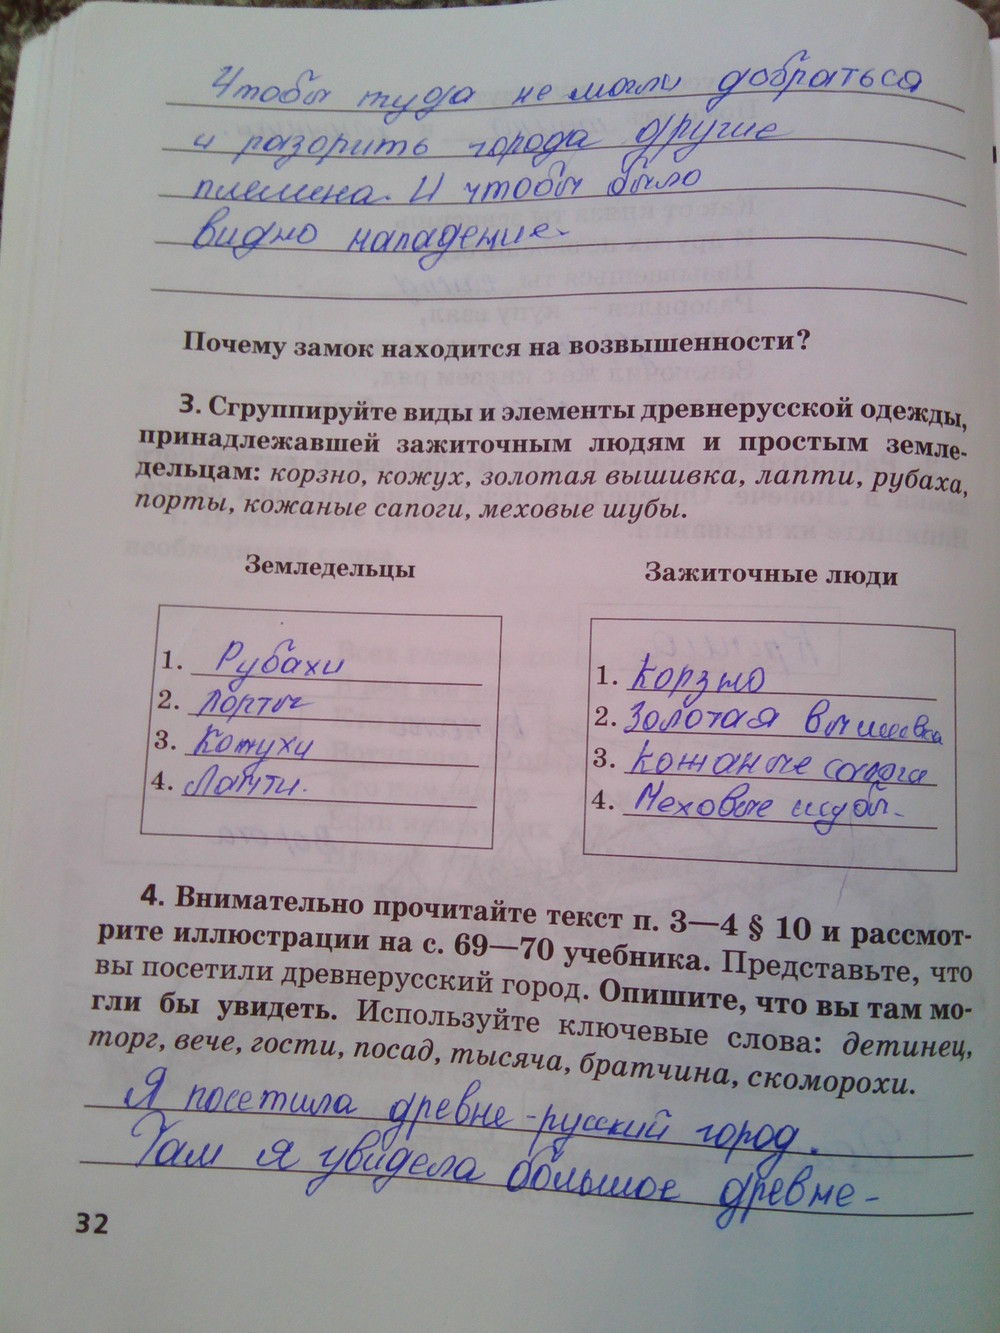 Чтобы туда не могли добраться
и разорить города другие
племена. И чтобы было
видно нападение.
Почему замок находится на возвышенности?
3. Сгруппируйте виды и элементы древнерусской одежды,
принадлежавшей зажиточным людям и простым земле-
дельцам: корзно, кожух, золотая вышивка, лапти, рубаха,
порты, кожаные сапоги, меховые шубы.
Земледельцы
Зажиточные люди
1. Рубахи
2. Порты
3. Кожухи
4. Лапти.
1. Корзно
2. Золотая вышивка
3. Кожаные сапоги
4. Меховые шубы.
4. Внимательно прочитайте текст п. 3—4 § 10 и рассмот-
рите иллюстрации на с. 69—70 учебника. Представьте, что
вы посетили древнерусский город. Опишите, что вы там мо-
гли бы увидеть. Используйте ключевые слова: детинец,
торг, вече, гости, посад, тысяча, братчина, скоморохи.
Я посетила древне-русский город.
Там я увидела большое древне-
32